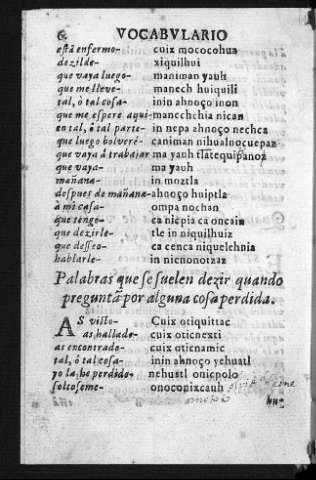 6. VOCABVLARIO
està enfermo- cuix mococohua
dezilde- xiquilhui
que vaya luego- maniman yauh
que me lleve- manech huiquili
tal, ò tal cosa- inin ahnoço inon
que me espere aqui- manechchia nican
en tal, ò tal parte- in nepa ahnoço nechca
que luego bolverè- caniman nihualnocuepaz
que vaya à trabajar ma yauh tlãtequipanoz
que vaya- ma yauh
mañana- in moztla
despues de mañana- ahnoço huiptla
à mi casa- ompa nochan
que tengo- ca nicpia ca oncain
que dezirle- tle in niquilhuiz
que desseo- ca cenca niquelehnia
hablarle- in nicnonotzaz
Palabras que se suelen dezir quando
preguntã por alguna cosa perdida.
AS visto- Cuix otiquittac
as hallado- cuix oticnexti
as encontrado- cuix oticnamic
tal, ò tal cosa- inin ahnoço yehuatl
yo la he perdido- nehuatl onicpolo
soltoseme- onocopixcauh